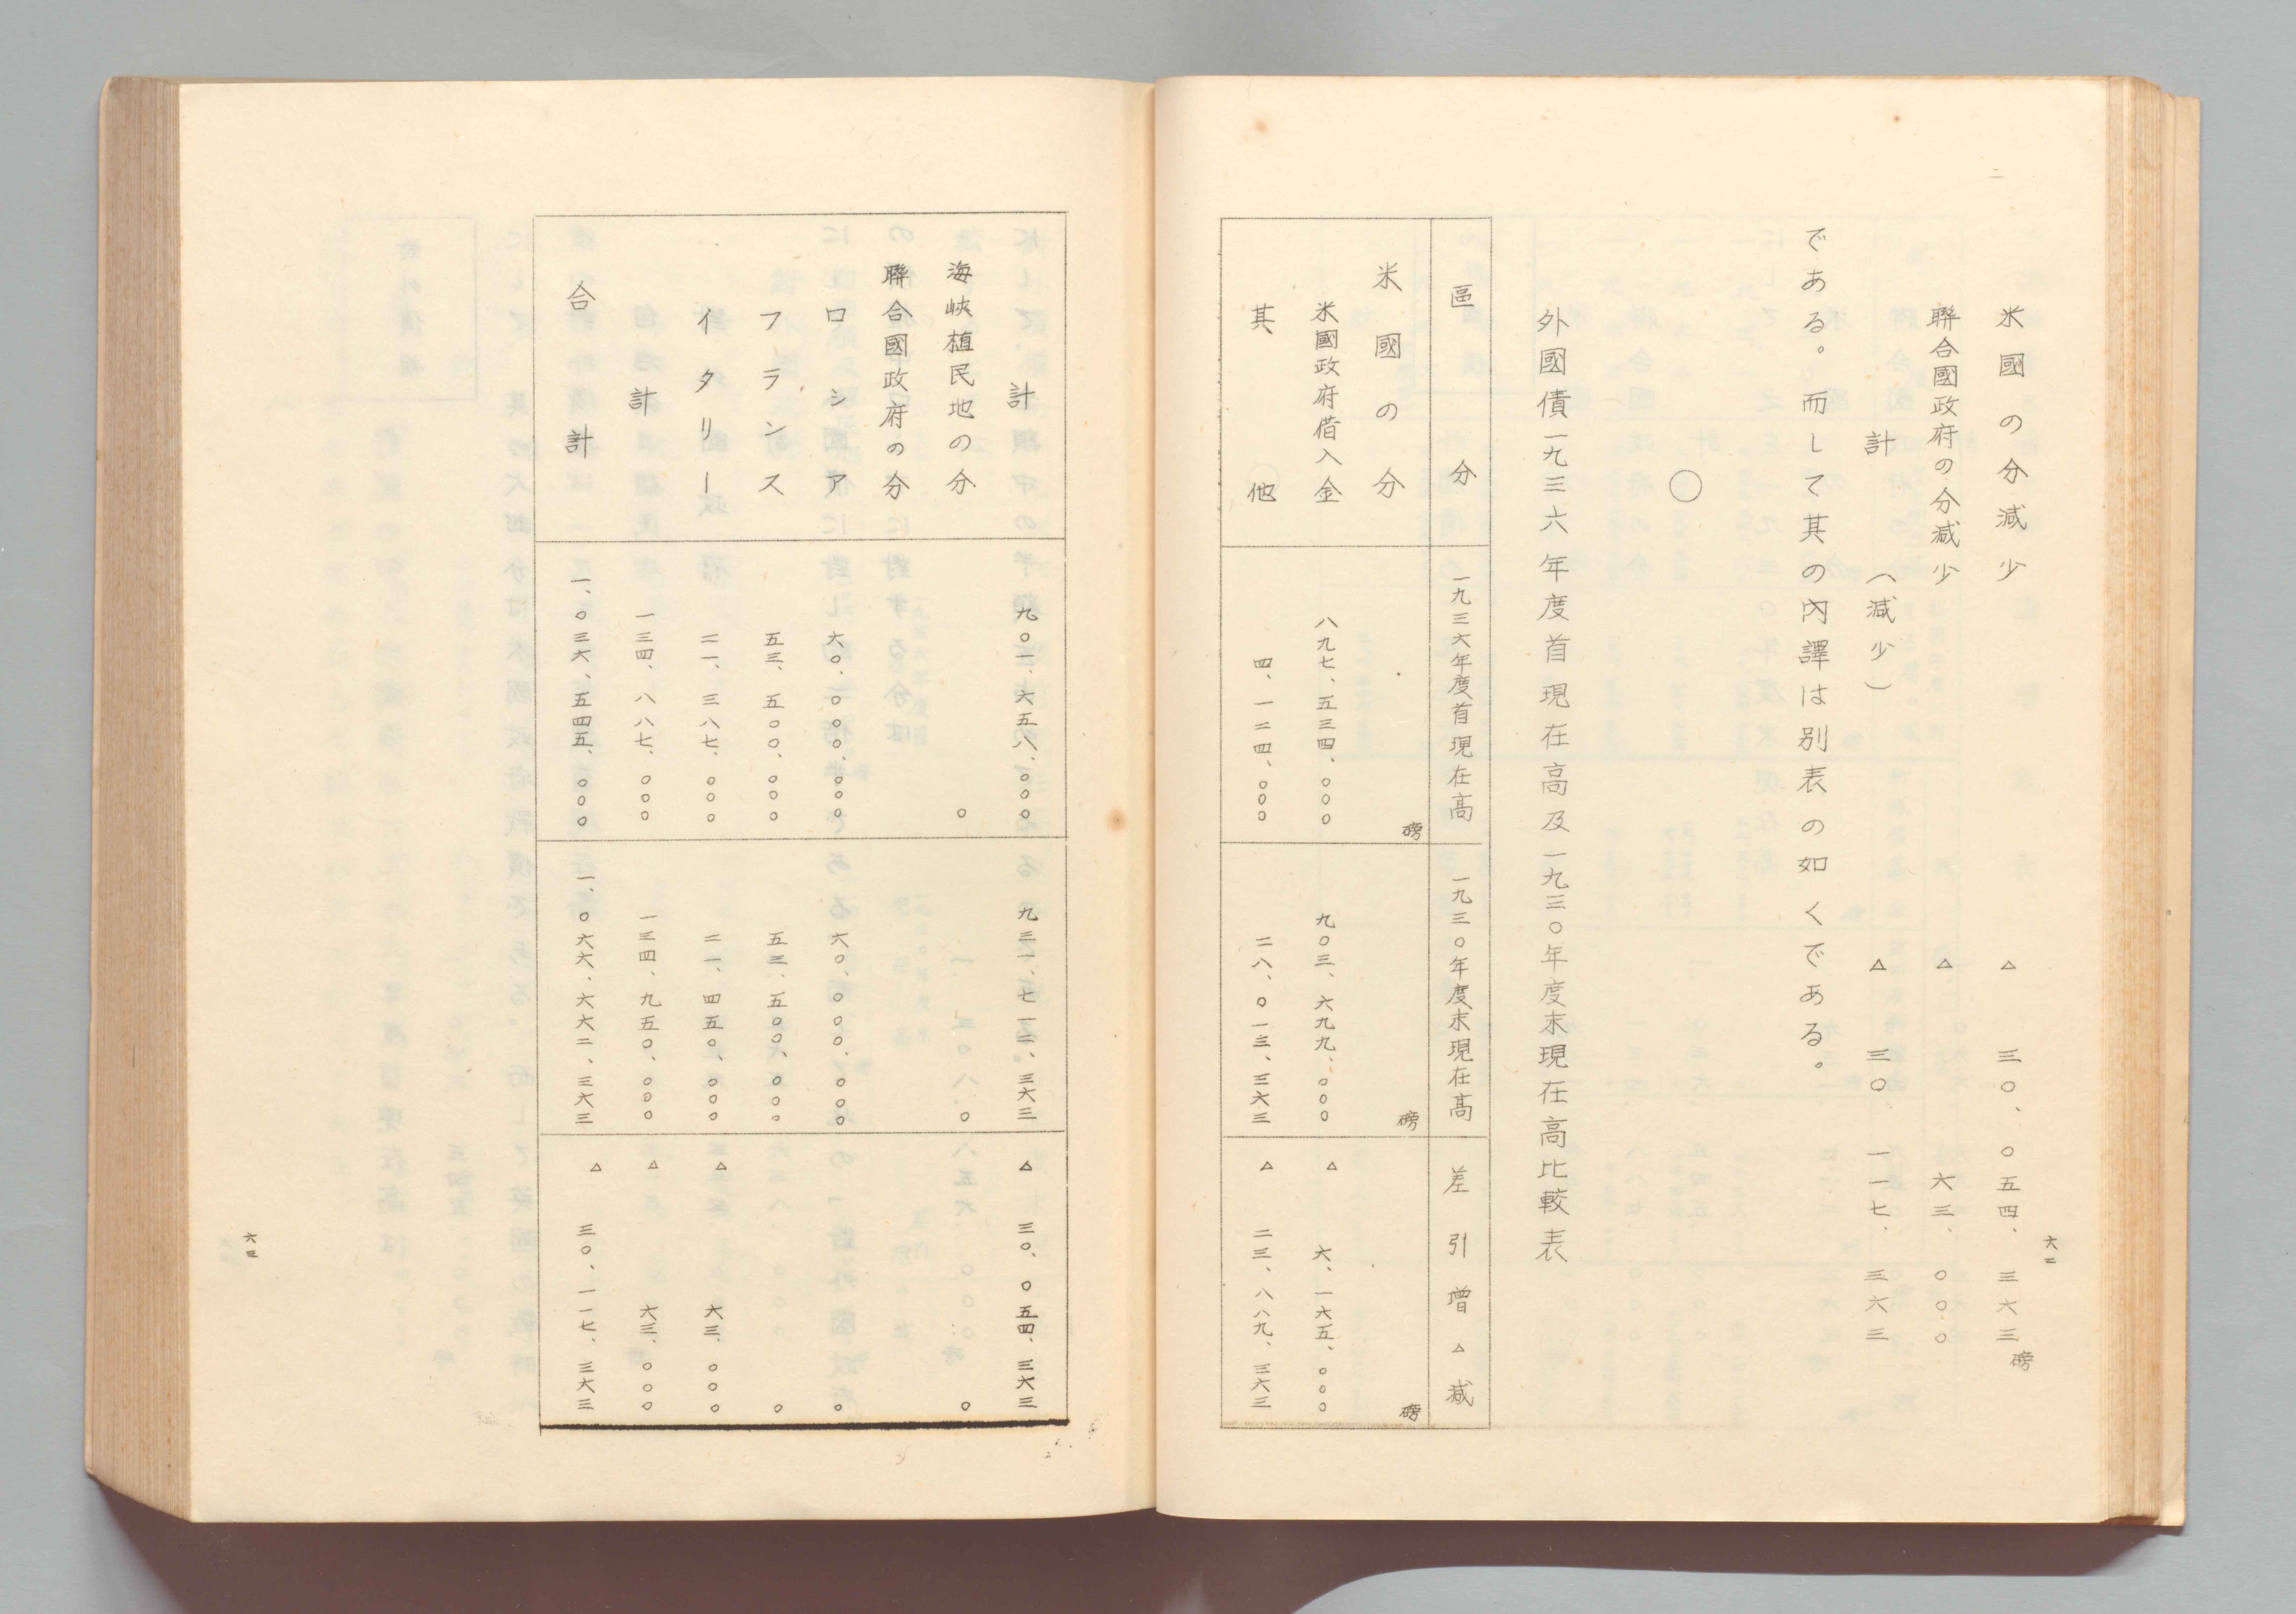 米國の分減少　△　三〇、〇五四、三六三磅
聯合國政府の分減少　△　六三、〇〇〇
計　（減少）　△　三〇、一一七、三六三
である。而して其の內譯は別表の如くである。
〇
外國債一九三六年度首現在高及一九三〇年度末現在高比較表
區分　一九三六年度首現在高　一九三〇年度末現在高　差引增△減
米國の分　磅　磅　磅
米國政府借入金　八九七、五三四、〇〇〇　九〇三、六九九、〇〇〇　△　六、一六五、〇〇〇
其他　四、一二四、〇〇〇　二八、〇一三、三六三　△　二三、八八九、三六三
六二
計　九〇一、六五八、〇〇〇　九三一、七一二、三六三　△　三〇、〇五四、三六三
海峽植民地の分　〇　〇　〇
聯合國政府の分
ロシア　六〇、〇〇〇、〇〇〇　六〇、〇〇〇、〇〇〇　〇
フランス　五三、五〇〇、〇〇〇　五三、五〇〇、〇〇〇　〇
イタリー　二一、三八七、〇〇〇　二一、四五〇、〇〇〇　△　六三、〇〇〇
計　一三四、八八七、〇〇〇　一三四、九五〇、〇〇〇　△　六三、〇〇〇
合計　一、〇三六、五四五、〇〇〇　一、〇六六、六六二、三六三　△　三〇、一一七、三六三
六三